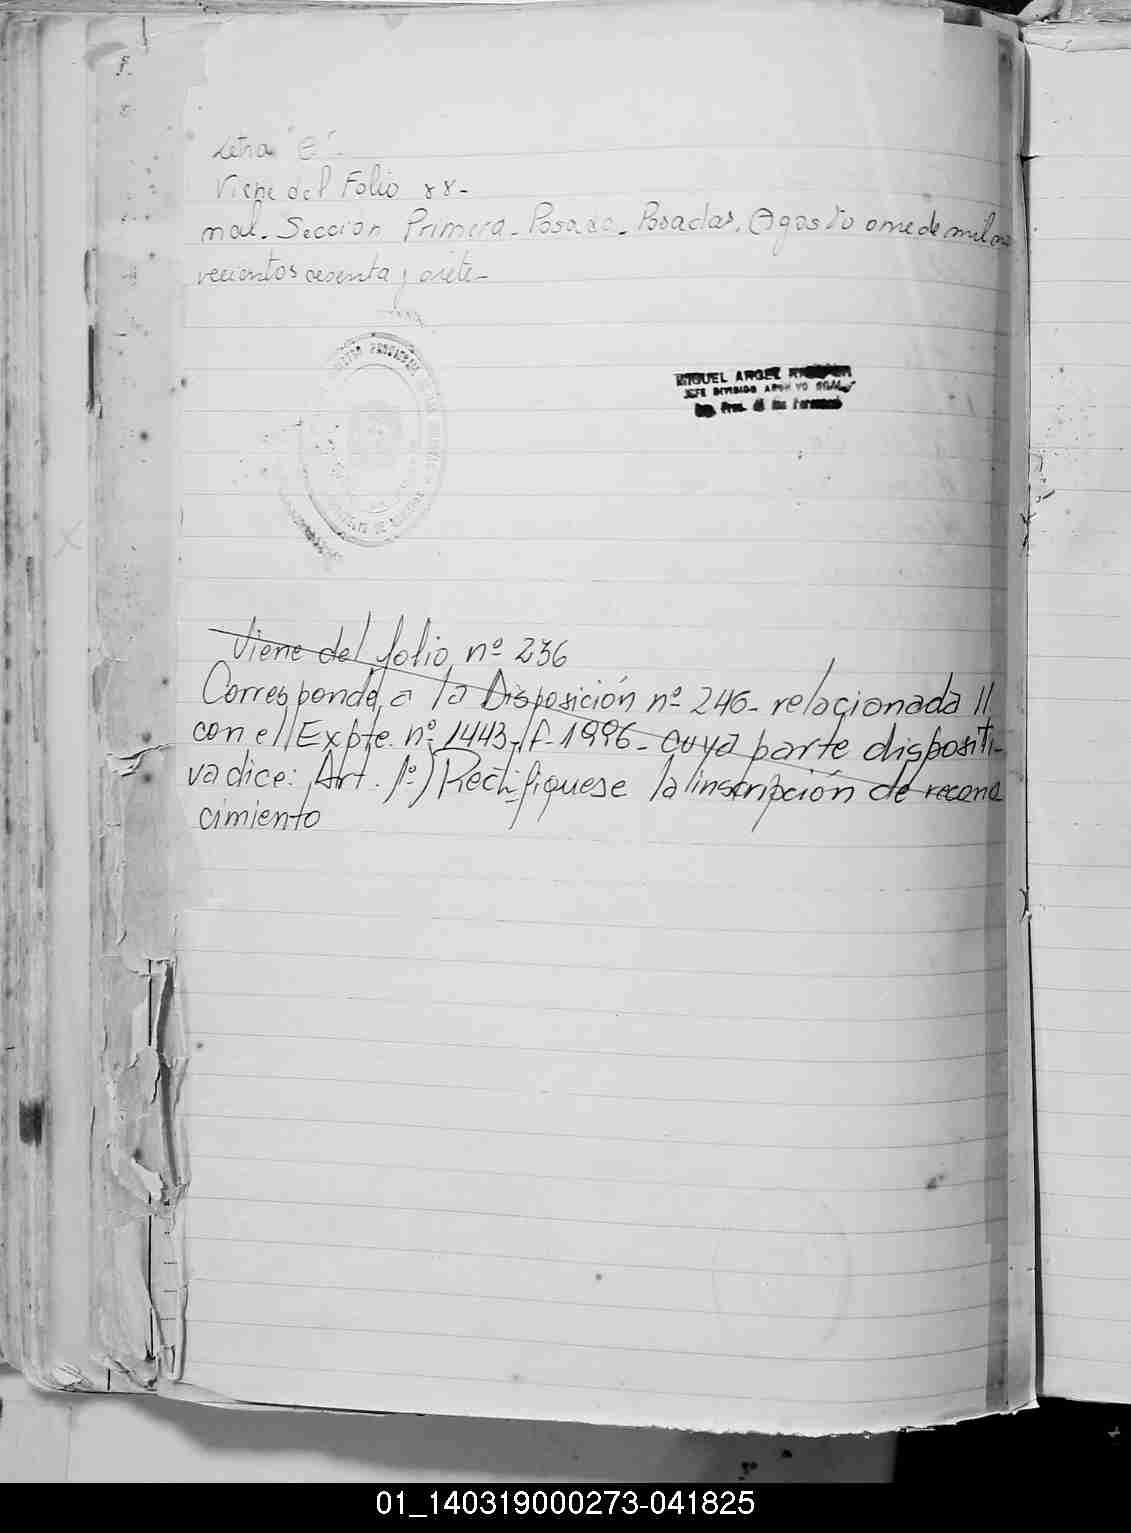 Letra "G".
Viene del Folio 88-
mal. Sección Primera. Posadas, Agosto once de mil no
vecientos sesenta y siete-
MIGUEL ANGEL
JEFE DIVISION ARCHIVO GRAL.
Viene del folio nº 236
Corresponde, a la Disposición nº 246- relacionada //
con el Expte. nº 1443-/f-1996- cuya parte dispositi-
va dice: Art. 1º) Rectifiquese la inscripción de recono
cimiento
01_140319000273-041825